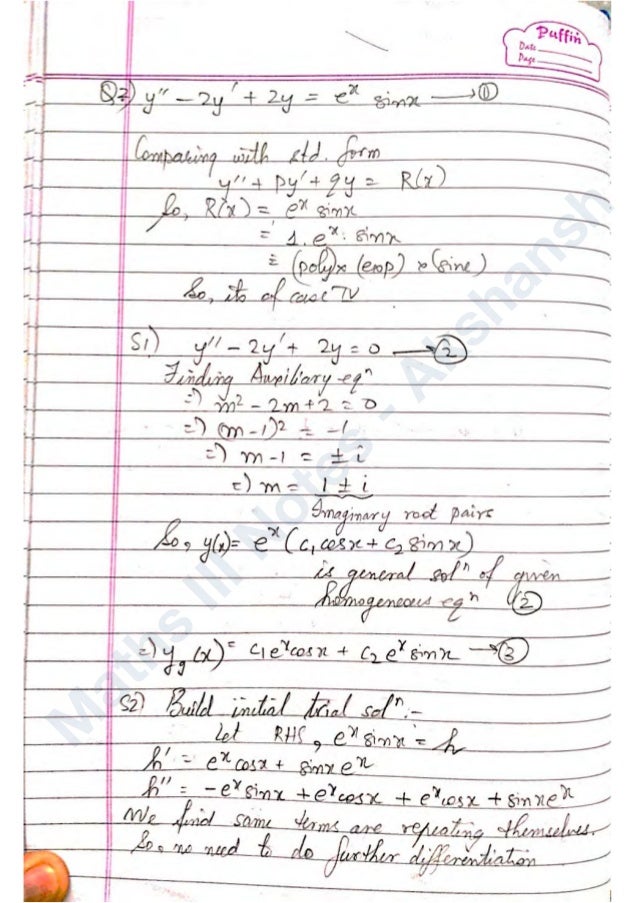 Puffin
Date
Page
Q2) y'' - 2y' + 2y = e^x sinx → ①
Comparing with std. form
y'' + Py' + qy = R(x)
So, R(x) = e^x sinx
= 1. e^x. sinx
= (poly) x (exp) x (sine)
So, its of case IV
S1) y'' - 2y' + 2y = 0 → ②
Finding Auxiliary eqⁿ
=) m² - 2m + 2 = 0
=) (m - 1)² = -1
=) m - 1 = ± i
=) m = 1 ± i
Imaginary root pairs
So, y(x) = e^x (c₁ cosx + c₂ sinx)
is general solⁿ of given
homogeneous eqⁿ ②
=) y_g (x) = c₁e^x cosx + c₂ e^x sinx → ③
S2) Build initial trial solⁿ :-
Let RHS, e^x sinx = h
h' = e^x cosx + sinx e^x
h'' = -e^x sinx + e^x cosx + e^x cosx + sinx e^x
We find same terms are repeating themselves.
So, no need to do further differentiation
Maths III Notes - Akshansh